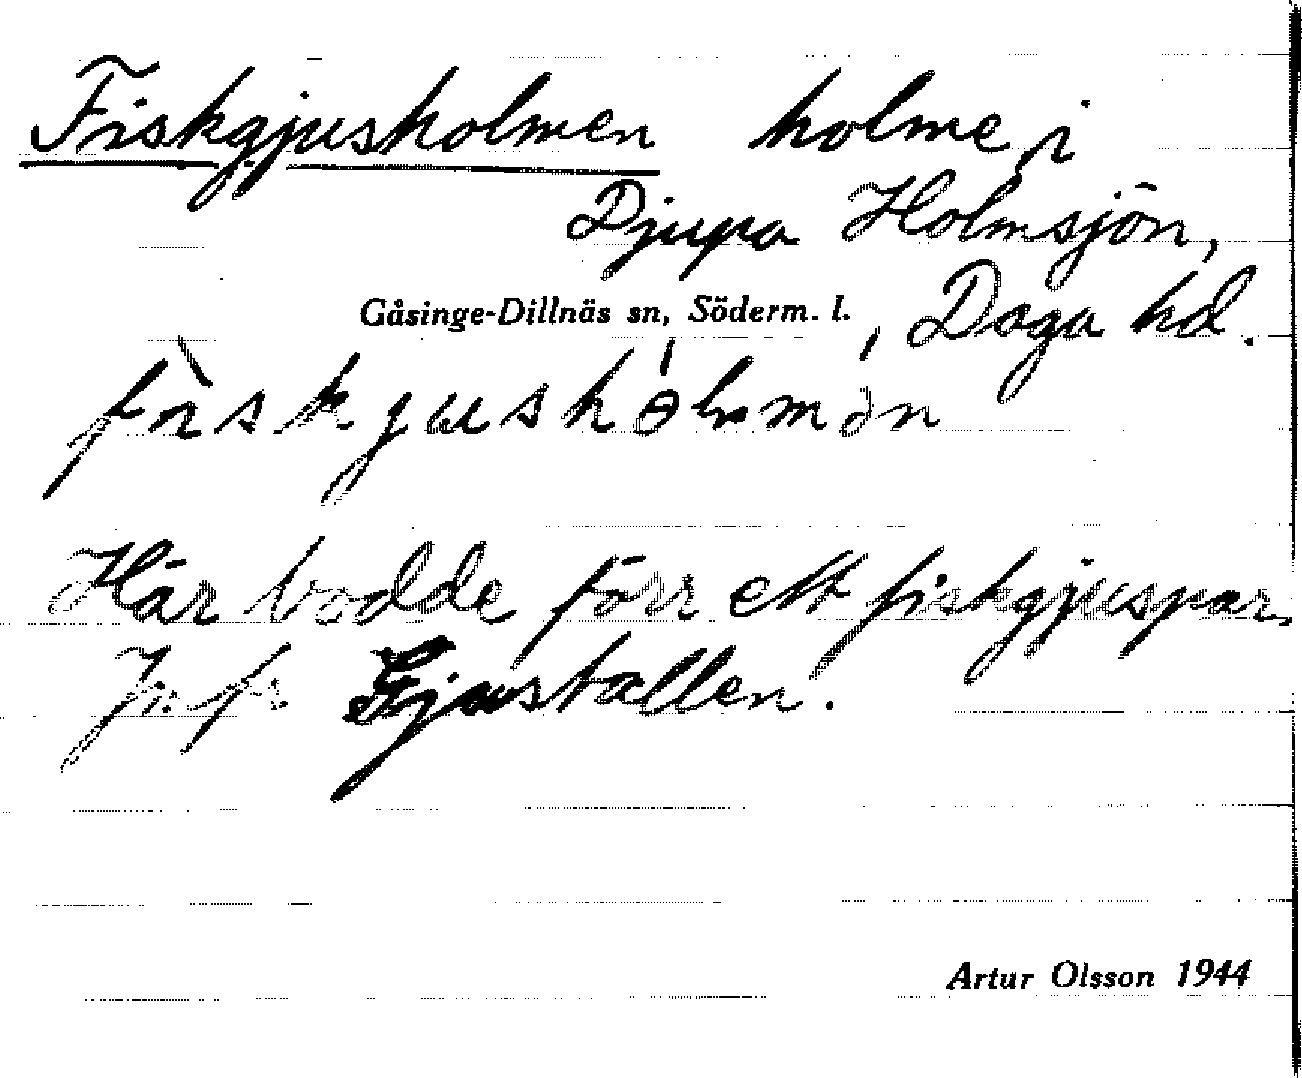 Fiskgjusholmen holme i
Djupa Holmsjön,
Gåsinge-Dillnäs sn, Söderm. l., Daga hd.
fìskjushólmən
Här bodde förr ett fiskgjuspar.
Jnfr Gjustallen.
Artur Olsson 1944